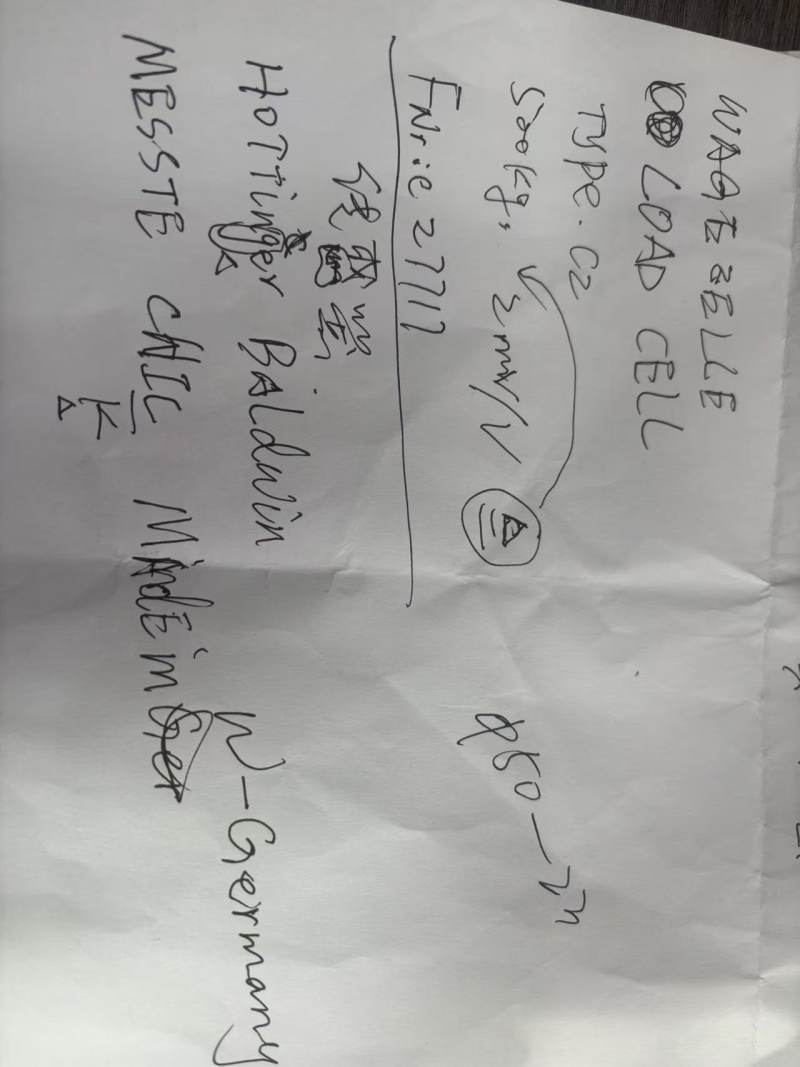 WAGEZELLE
LOAD CELL
TYPE. C2
500kg, 2mv/V
FNr:e 27717
φ50 —
HoTTinger BALdwin
MESSTE CHIC MAdEin
K
W-Germany